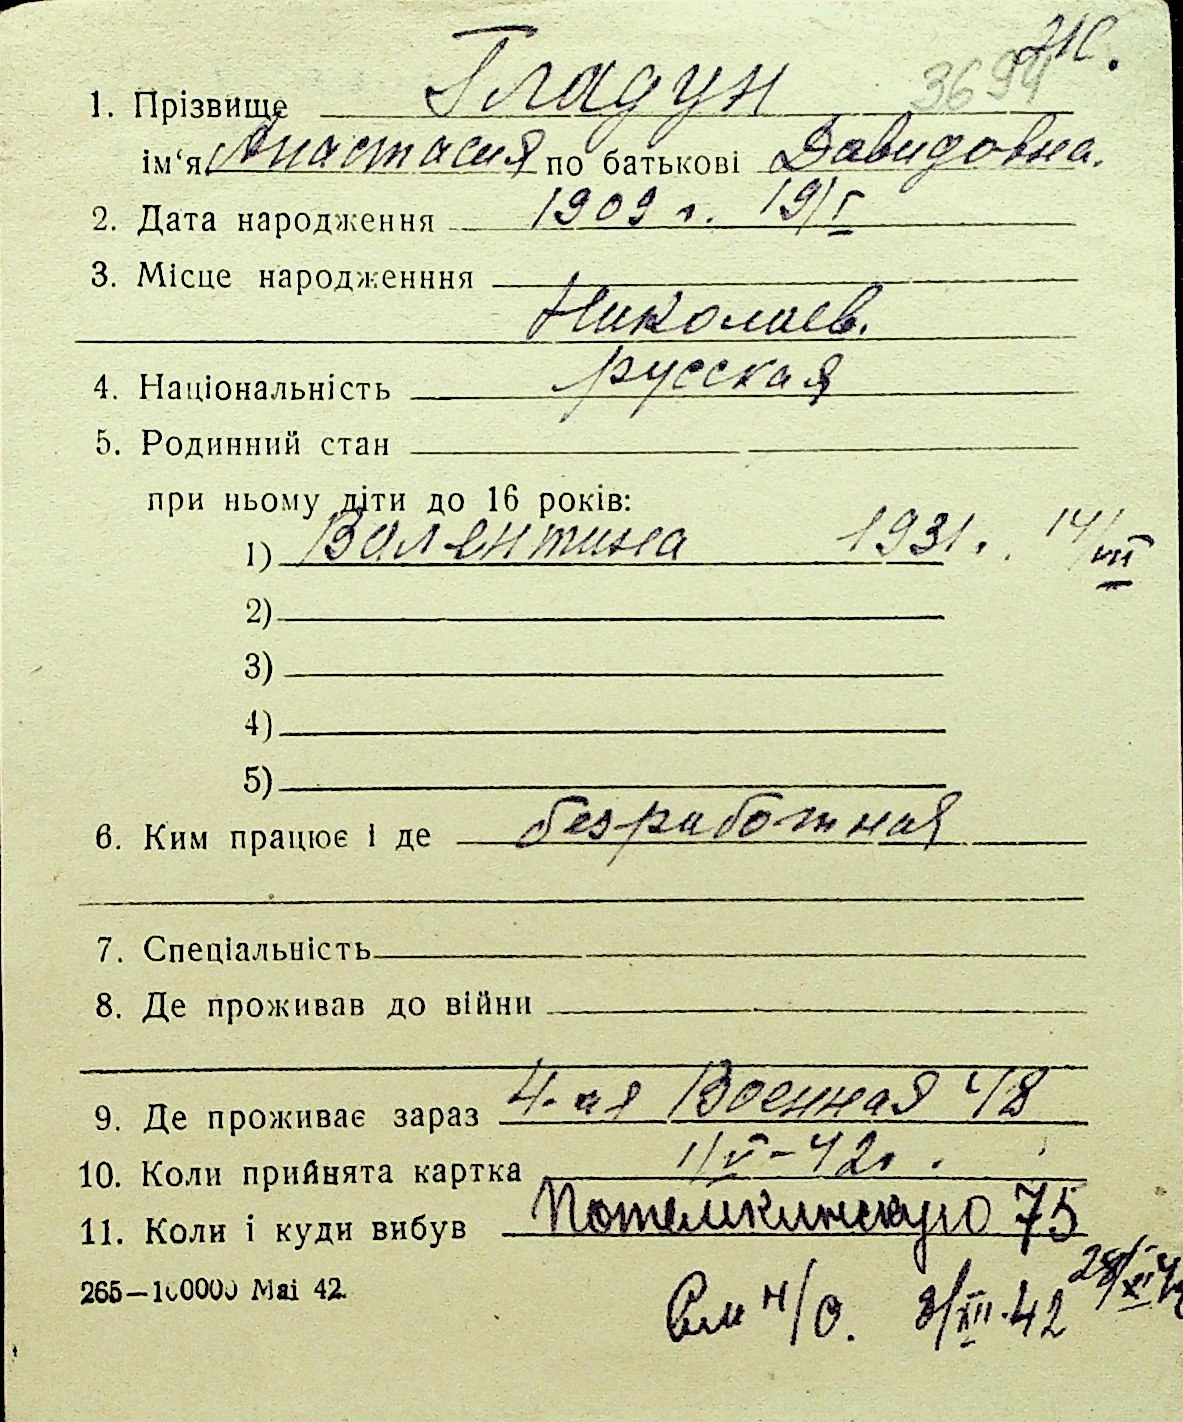 Ж.
3694
1. Прізвище Гладун
ім‘я Анастасия по батькові Давидовна.
2. Дата народження 1909 г. 19/I
3. Місце народженння
Николаев.
4. Національність русская
5. Родинний стан
при ньому діти до 16 років:
1) Валентина 1931. 14/VII
2)
3)
4)
5)
6. Ким працює і де безработная
7. Спеціальність
8. Де проживав до війни
9. Де проживає зараз 4-ая Военная 48
10. Коли прийнята картка 1/V-42г.
11. Коли і куди вибув Потемкинскую 75
28/XI 42
265—100000 Mai 42.
См н/о. 3/XII-42